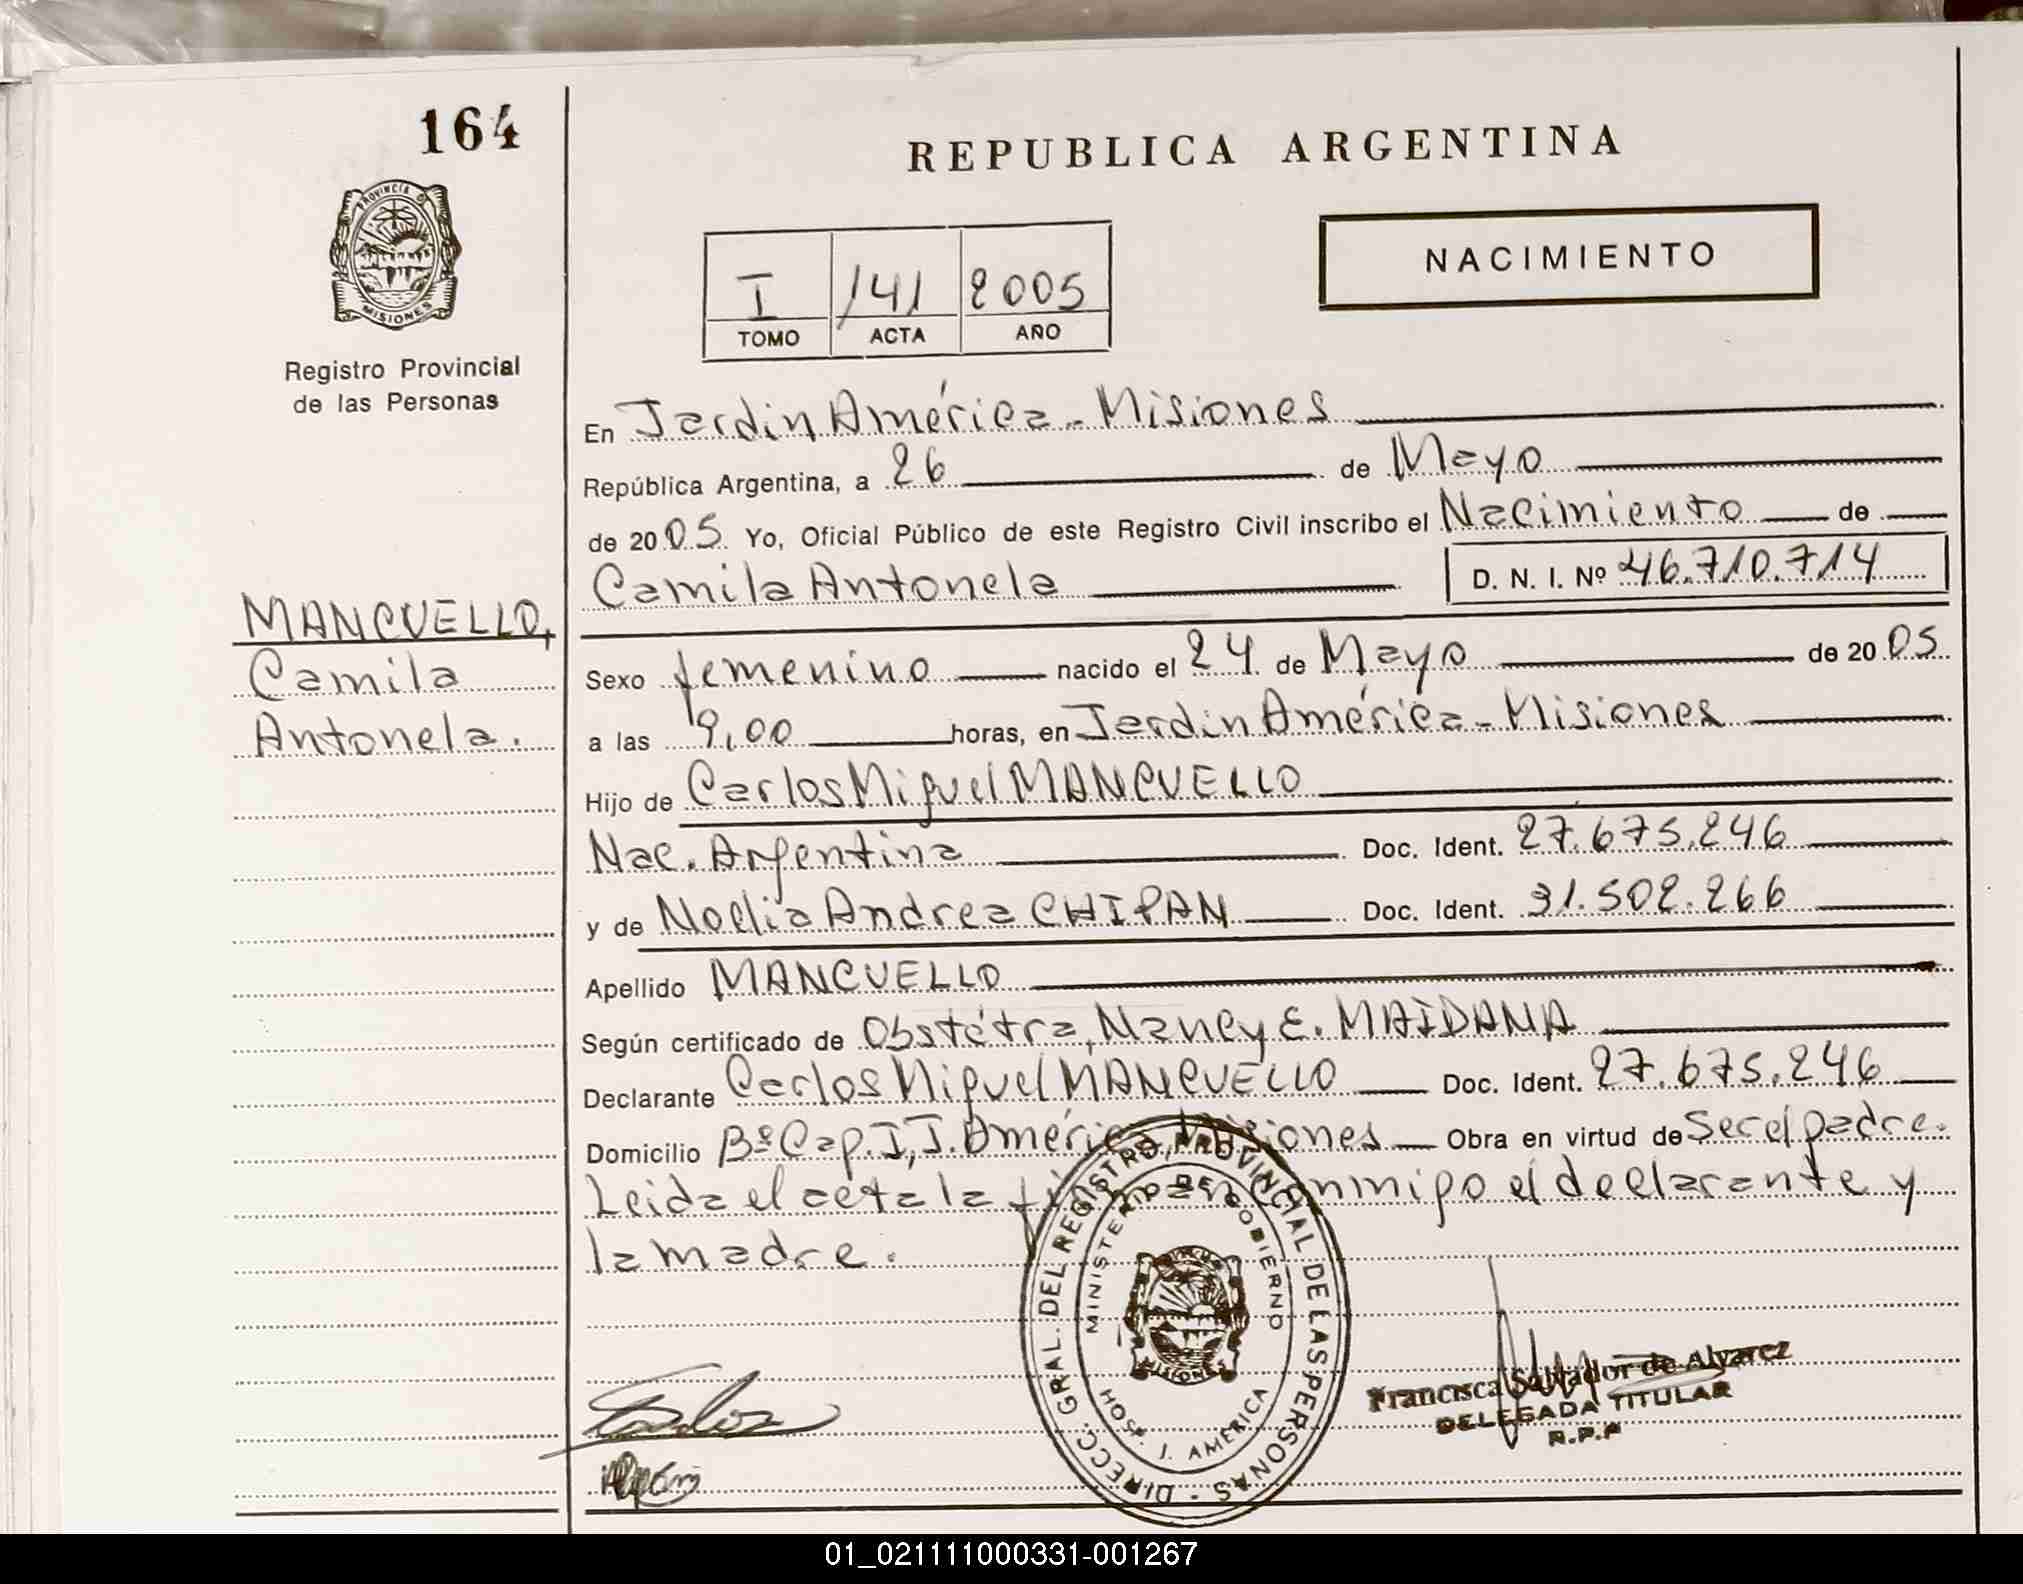 164
REPUBLICA ARGENTINA
PROVINCIA DE
MISIONES
Registro Provincial
de las Personas
NACIMIENTO
I 141 2005
TOMO ACTA AÑO
En Jardin América - Misiones
República Argentina, a 26 de Mayo
de 2005. Yo, Oficial Público de este Registro Civil inscribo el Nacimiento de
Camila Antonela D. N. I. Nº 46.710.714
MANCUELLO,
Camila
Antonela.
Sexo femenino nacido el 24 de Mayo de 2005
a las 9,00 horas, en Jardin América - Misiones
Hijo de Carlos Miguel MANCUELLO
Nac. Argentina Doc. Ident. 27.675.246
y de Noelia Andrea CHIPAN Doc. Ident. 31.502.266
Apellido MANCUELLO
Según certificado de Obstétra, Nancy E. MAIDANA
Declarante Carlos Miguel MANCUELLO Doc. Ident. 27.675.246
Domicilio Bº Cap. II, J. América, Misiones Obra en virtud de Ser el padre.
Leida el acta la firman conmigo el declarante y
la madre.
DIRECC. GRAL. DEL REGISTRO PROVINCIAL DE LAS PERSONAS
MINISTERIO DE GOBIERNO
MISIONES
HOSP. J. AMERICA
Francisca Salvador de Alvarez
DELEGADA TITULAR
R.P.P
01_021111000331-001267